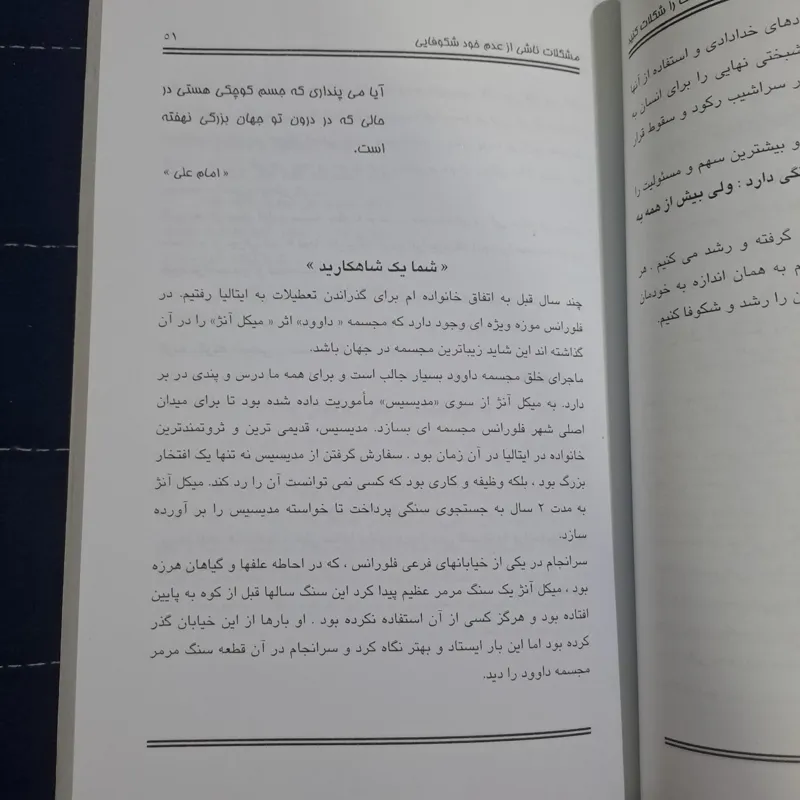 مشکلات ناشی از عدم خود شکوفایی
۵۹
آیا می پنداری که جسم کوچکی هستی در
حالی که در درون تو جهان بزرگی نهفته
است.
« امام علی »
« شما یک شاهکارید »
چند سال قبل به اتفاق خانواده ام برای گذراندن تعطیلات به ایتالیا رفتیم. در
فلورانس موزه ویژه ای وجود دارد که مجسمه « داوود» اثر « میکل آنژ» را در آن
گذاشته اند این شاید زیباترین مجسمه در جهان باشد.
ماجرای خلق مجسمه داوود بسیار جالب است و برای همه ما درس و پندی در بر
دارد. به میکل آنژ از سوی «مدیسیس» مأموریت داده شده بود تا برای میدان
اصلی شهر فلورانس مجسمه ای بسازد. مدیسیس، قدیمی ترین و ثروتمندترین
خانواده در ایتالیا در آن زمان بود . سفارش گرفتن از مدیسیس نه تنها یک افتخار
بزرگ بود ، بلکه وظیفه و کاری بود که کسی نمی توانست آن را رد کند. میکل آنژ
به مدت ۲ سال به جستجوی سنگی پرداخت تا خواسته مدیسیس را بر آورده
سازد.
سرانجام در یکی از خیابانهای فرعی فلورانس ، که در احاطه علفها و گیاهان هرزه
بود ، میکل آنژ یک سنگ مرمر عظیم پیدا کرد این سنگ سالها قبل از کوه به پایین
افتاده بود و هرگز کسی از آن استفاده نکرده بود . او بارها از این خیابان گذر
کرده بود اما این بار ایستاد و بهتر نگاه کرد و سرانجام در آن قطعه سنگ مرمر
مجسمه داوود را دید.
را شکلات کنید
دهای خدادادی و استفاده از آنها
شبختی نهایی را برای انسان به
ر سراشیب رکود و سقوط قرار
و بیشترین سهم و مسئولیت را
گی دارد : ولی بیش از همه به
گرفته و رشد می کنیم . هر
م به همان اندازه به خودمان
ن را رشد و شکوفا کنیم.